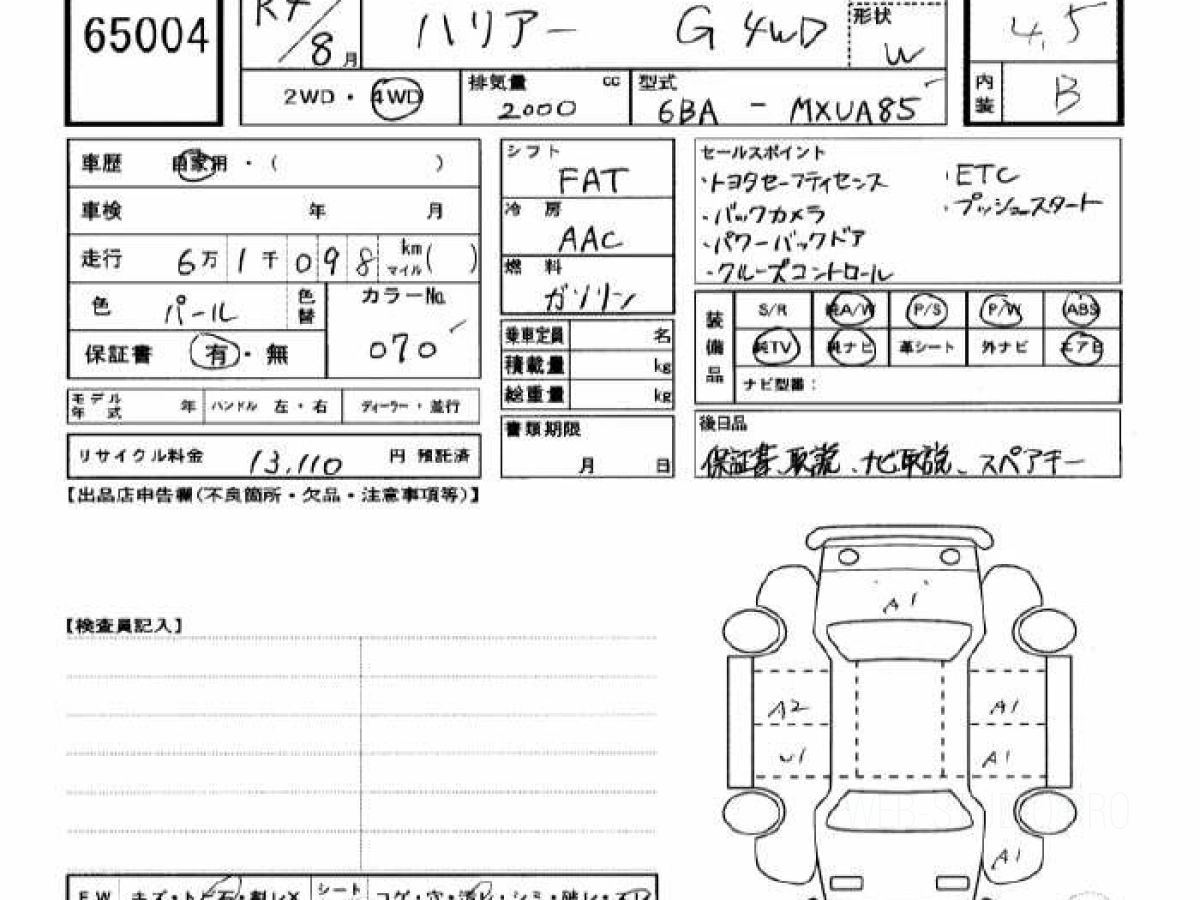 65004
R4/8月
ハリアー G 4WD
形状 W
4.5
2WD・4WD
排気量 cc 2000
型式 6BA - MXUA85
内装 B
車歴 自家用・( )
車検 年 月
走行 6万1千098 km マイル( )
色 パール 色替
カラーNo. 070
保証書 有・無
モデル年式 年
ハンドル 左・右
ディーラー・並行
リサイクル料金 13,110 円 預託済
シフト FAT
冷房 AAC
燃料 ガソリン
乗車定員 名
積載量 kg
総重量 kg
書類期限 月 日
セールスポイント
・トヨタセーフティセンス ・ETC
・バックカメラ ・プッシュスタート
・パワーバックドア
・クルーズコントロール
装備品
S/R 純A/W P/S P/W ABS
純TV 純ナビ 革シート 外ナビ エアB
ナビ型番:
後日品
保証書、取説、ナビ取説、スペアキー
【出品店申告欄(不良箇所・欠品・注意事項等)】
【検査員記入】
A1
A2 A1
U1 A1
A1
FW キズ・トビ石・割レX シート コゲ・穴・汚レ・シミ・破レ・スレ